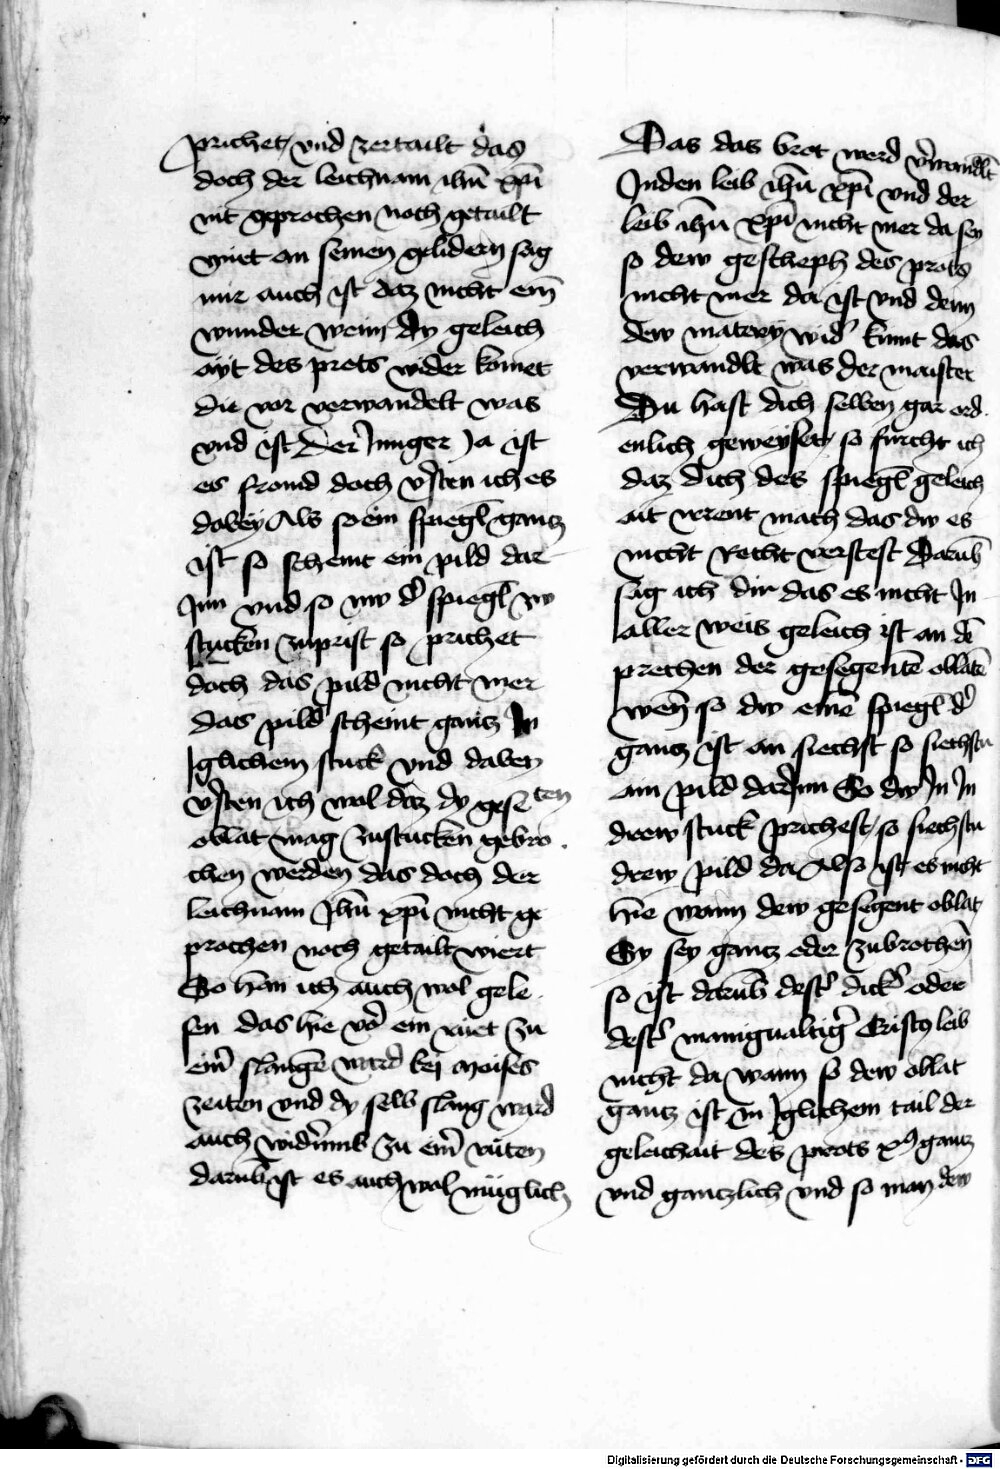 prichet und zertailt das
doch der leichnam ihũ xpi
nit geprochen noch getailt
wiert an seinen gelidern sag
mir auch ist daz nicht ein
wunder wenn dy geleich
ayt des prots wider komet
die vor verwandelt was
und ist Der Junger Ja ist
es fromd doch v̓sten ich es
dabey Als so ein spiegl gantz
ist so scheint ein pild dar
Inn und so nw d̓ spiegl in
stucken zuprist so prichet
doch das pild nicht mer
das pild scheint gantz In
Iglichem stuck und dabey
v̓sten ich wol daz dy gesegten
oblat mag zustucken gebro
chen werden das doch der
leichnam Jhũ xpi nicht ge
prochen noch getailt wiert
So han ich auch wol gele
sen das hie vor ein ruet zu
eim̃ slangẽ ward bej moises
zeiten und dy selb slang ward
auch wid̓umb zu eim̃ ruten
darũb ist es auch wol müglich
Das das brot werd v̓wandlt
Inden leib ihũ xpi und der
leib ihũ xpi nicht mer da sey
so dew gescheph des prots
nicht mer da ist und denn
dew matery wid̓ kumt das
verwandlt was der maister
Du hast dich selben gar ord
enlich geweyset so furcht ich
daz dich des spiegl geleich
ait verent mach das dw es
nicht Recht verstest Darũb
sag ich dir das es nicht In
aller weis geleich ist an dẽ
prechen der gesegentẽ oblatẽ
wen̄ so dw einẽ spiegl d̓
gantz ist an siechst so siechstu
ain pild darInn So dw In In
drew stuck prichest so siechstu
drew pild da Also ist es nicht
hie wann dew gesegent oblat
Sy sey gantz oder zubrochen
so ist darũb dest̓ dick̓ oder
dest̓ manigualtig̓ Cristy leib
nicht da wann so dew oblat
gantz ist in Iglichem tail der
geleichait des prots xps gantz
und gantzlich und so man dew
Digitalisierung gefördert durch die Deutsche Forschungsgemeinschaft - DFG